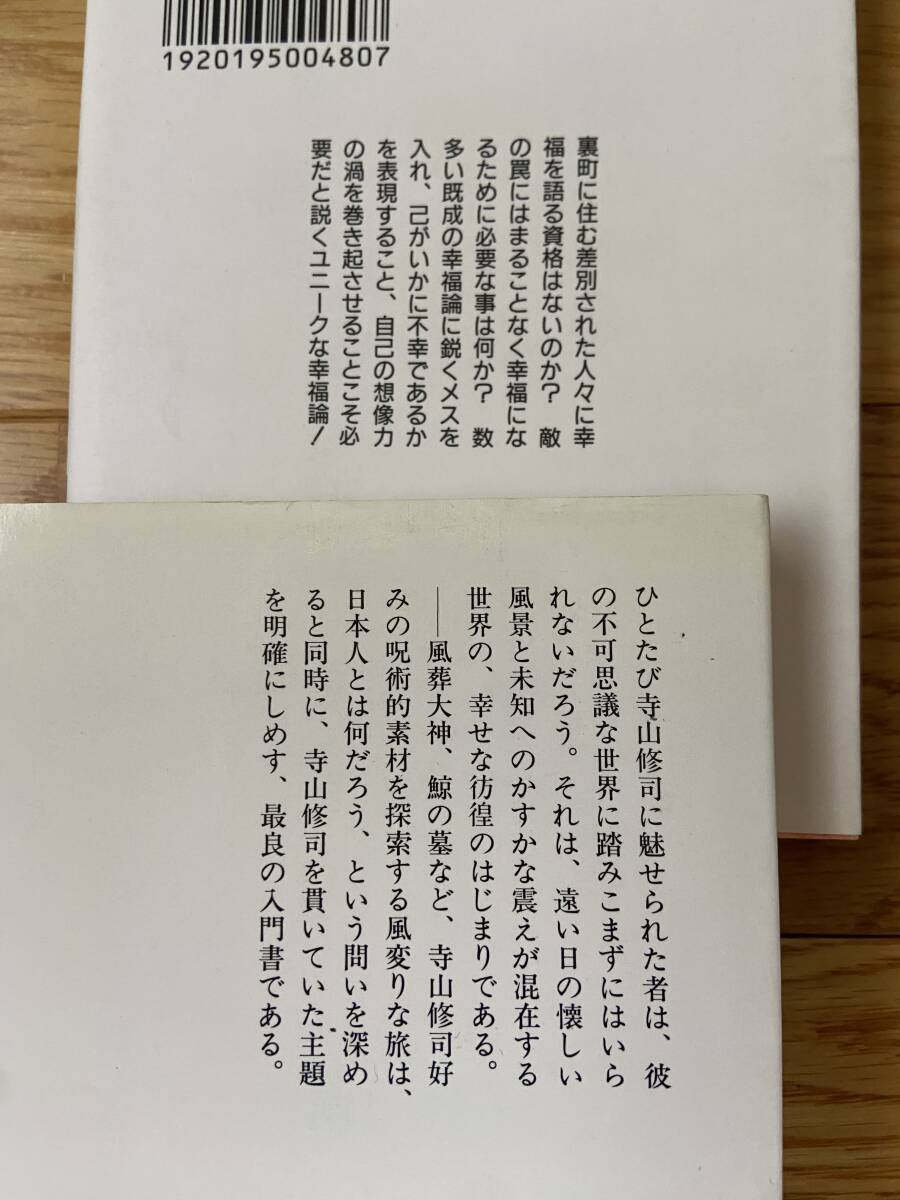 1920195004807
裏町に住む差別された人々に幸
福を語る資格はないのか？　敵
の罠にはまることなく幸福にな
るために必要な事は何か？　数
多い既成の幸福論に鋭くメスを
入れ、己がいかに不幸であるか
を表現すること、自己の想像力
の渦を巻き起させることこそ必
要だと説くユニークな幸福論！
ひとたび寺山修司に魅せられた者は、彼
の不可思議な世界に踏みこまずにはいら
れないだろう。それは、遠い日の懐しい
風景と未知へのかすかな震えが混在する
世界の、幸せな彷徨のはじまりである。
――風葬大神、鯨の墓など、寺山修司好
みの呪術的素材を探索する風変りな旅は、
日本人とは何だろう、という問いを深め
ると同時に、寺山修司を貫いていた主題
を明確にしめす、最良の入門書である。